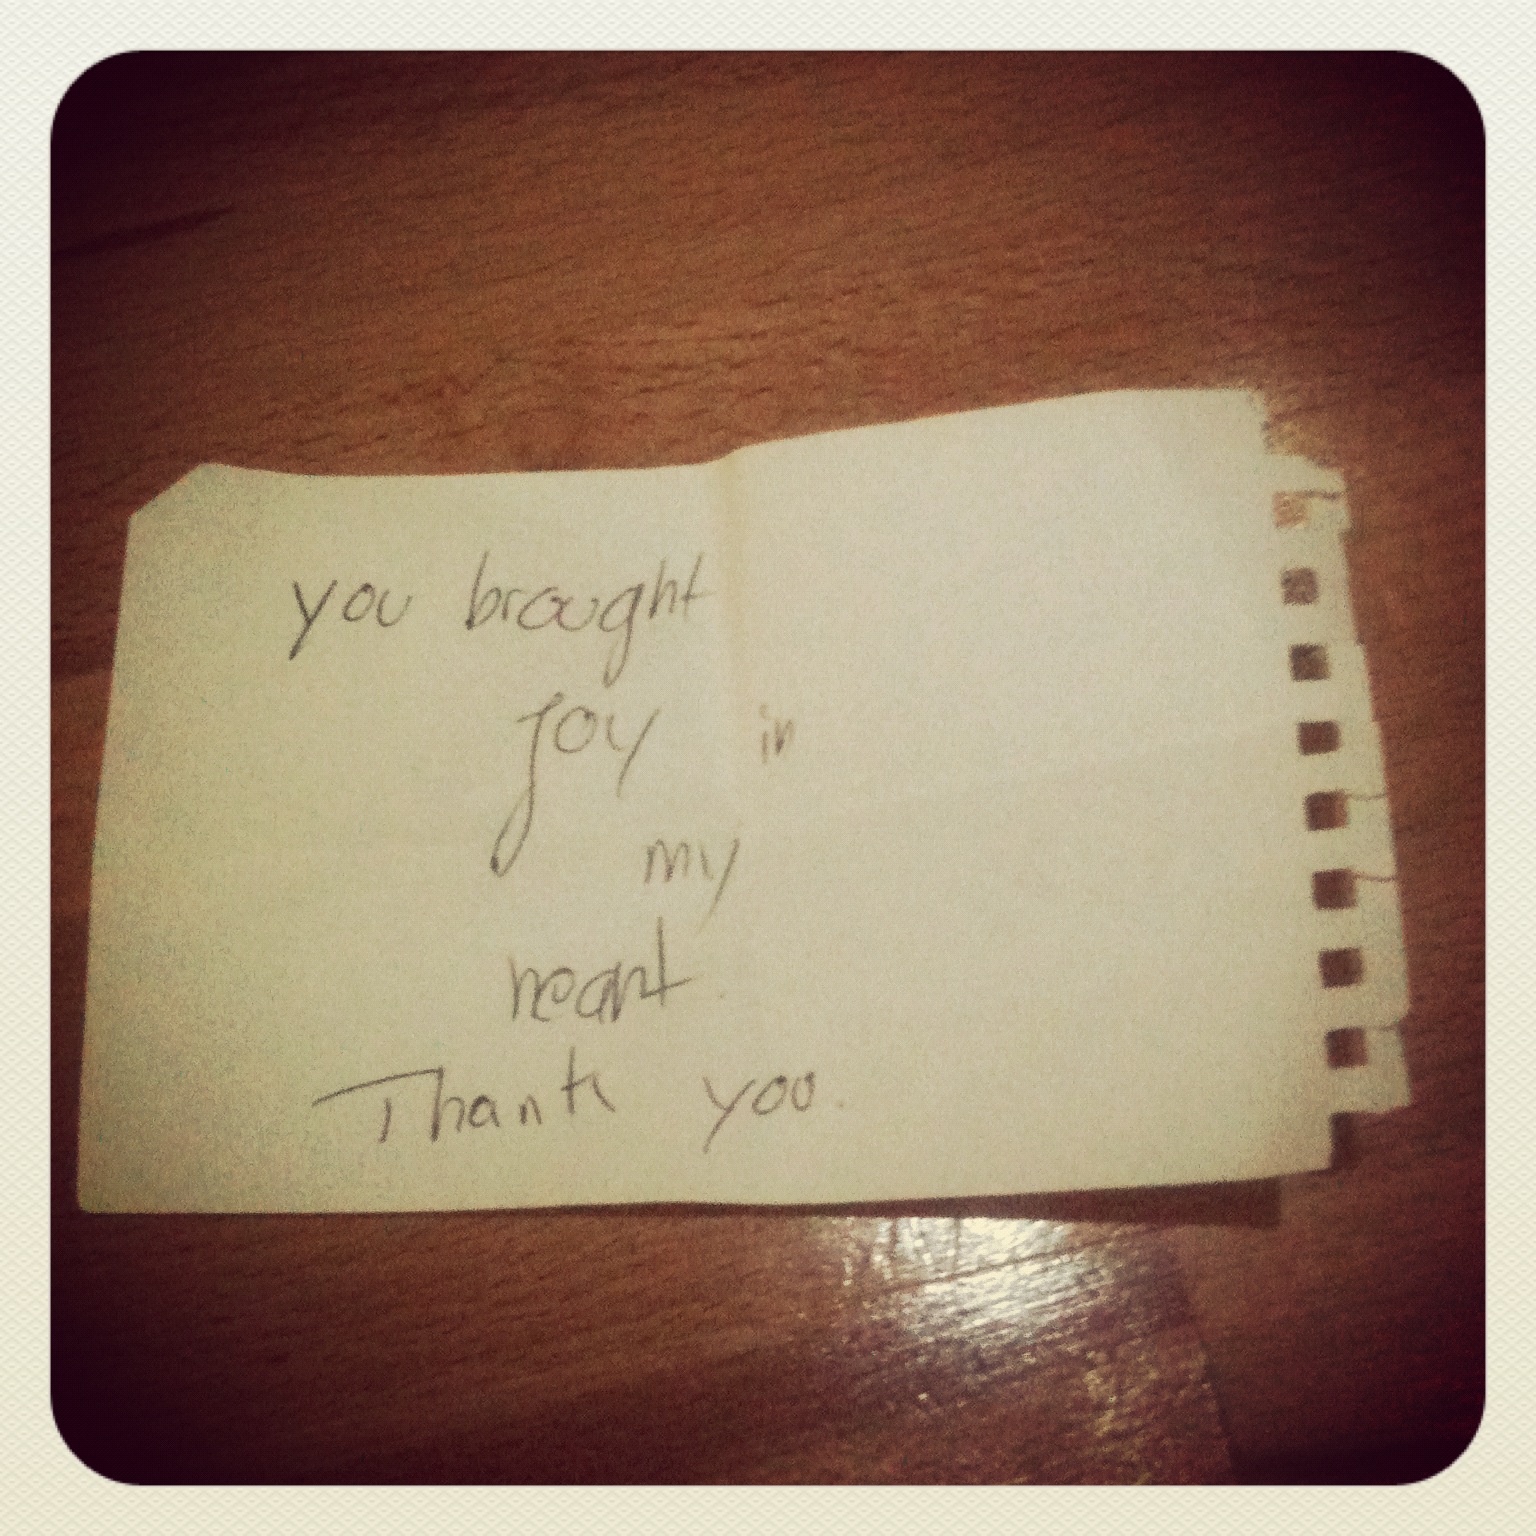 you brought
joy in
my
heart.
Thank you.